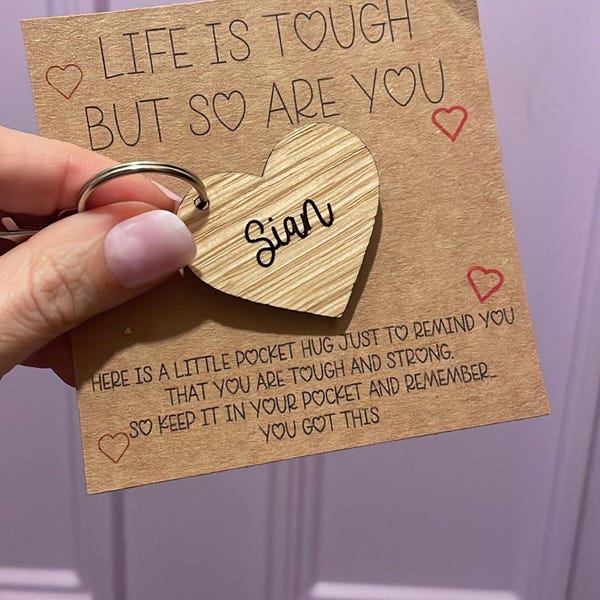 LIFE IS TOUGH
BUT SO ARE YOU
Sian
HERE IS A LITTLE POCKET HUG JUST TO REMIND YOU
THAT YOU ARE TOUGH AND STRONG.
SO KEEP IT IN YOUR POCKET AND REMEMBER...
YOU GOT THIS